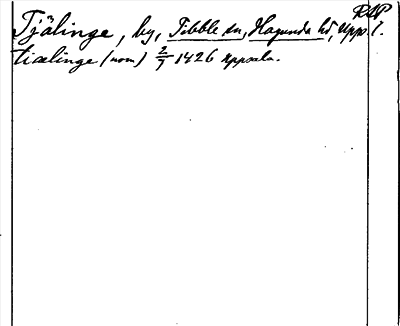 RAP
Tjälinge, by, Tibble sn, Hagunda hd, Upps. l.
tiælinge (nom) 2/7 1426 Uppsala.